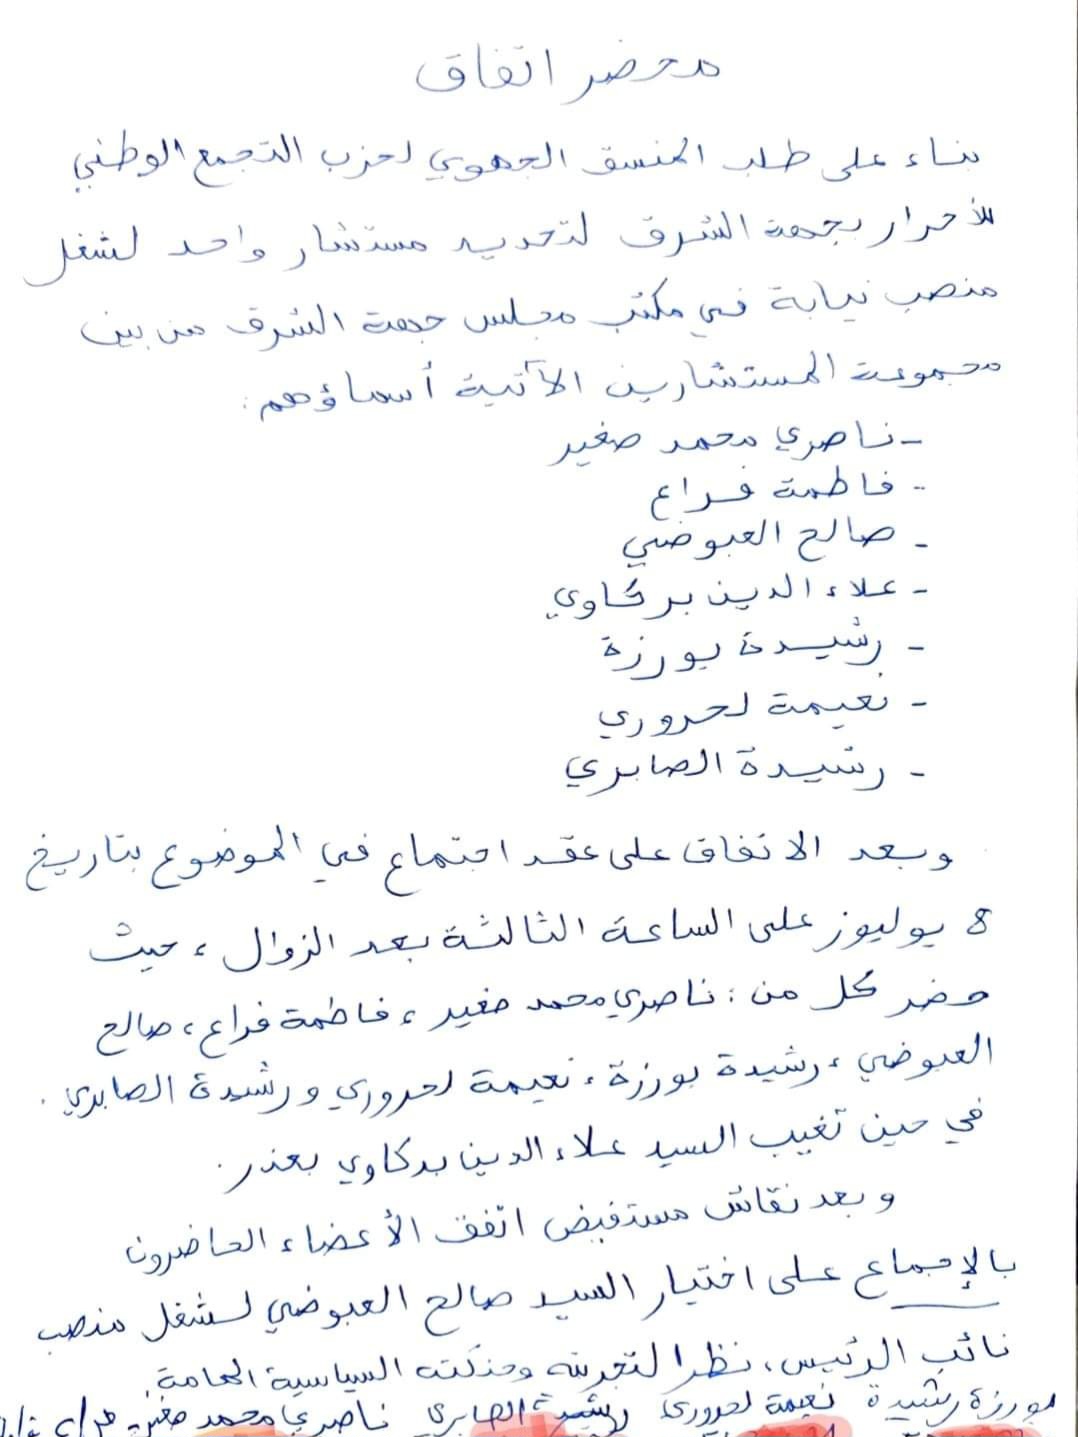 محضر اتفاق
بناء على طلب المنسق الجهوي لحزب التجمع الوطني
للأحرار بجهة الشرق لتحديد مستشار واحد لشغل
منصب نيابة في مكتب مجلس جهة الشرق من بين
مجموعة المستشارين الآتية أسماؤهم:
- ناصري محمد صغير
- فاطمة فراع
- صالح العبوضي
- علاء الدين بركاوي
- رشيدة بورزة
- نعيمة لحروري
- رشيدة الصابري
وبعد الاتفاق على عقد اجتماع في الموضوع بتاريخ
8 يوليوز على الساعة الثالثة بعد الزوال، حيث
حضر كل من: ناصري محمد صغير، فاطمة فراع، صالح
العبوضي، رشيدة بورزة، نعيمة لحروري ورشيدة الصابري.
في حين تغيب السيد علاء الدين بركاوي بعذر.
وبعد نقاش مستفيض اتفق الأعضاء الحاضرون
بالإجماع على اختيار السيد صالح العبوضي لشغل منصب
نائب الرئيس، نظرا لتجربته وحنكته السياسية الهامة.
بورزة رشيدة نعيمة لحروري رشيدة الصابري ناصري محمد صغير فراع